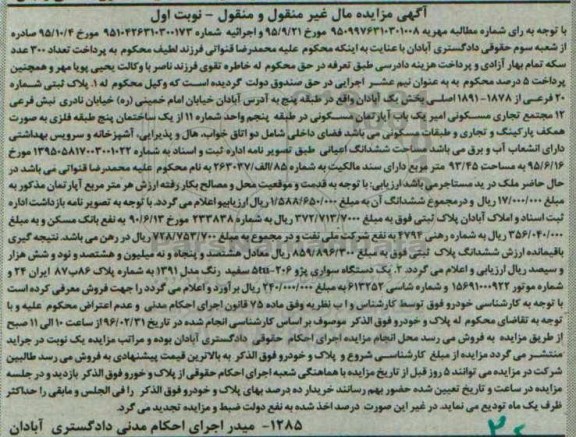 آگهی مزایده مال غیر منقول و منقول - نوبت اول
با توجه به رای شماره مطالبه مهریه ۹۵۰۹۹۷۶۳۱۰۳۰۱۰۰۸ مورخ ۹۵/۹/۲۱ و اجرائیه شماره ۹۵۱۰۴۲۶۳۱۰۳۰۰۱۷۳ مورخ ۹۵/۱۰/۴ صادره
از شعبه سوم حقوقی دادگستری آبادان با عنایت به اینکه محکوم علیه محمدرضا قنواتی فرزند لطیف محکوم به پرداخت تعداد ۳۰۰ عدد
سکه تمام بهار آزادی و پرداخت هزینه دادرسی طبق تعرفه در حق محکوم له خاطره تقوی فرزند ناصر با وکالت یحیی پویا مهر و همچنین
پرداخت ۵ درصد محکوم به به عنوان نیم عشر اجرایی در حق صندوق دولت گردیده است که وکیل محکوم له ۱. پلاک ثبتی شماره
۲۰ فرعی از ۱۸۷۸-۱۸۹۱ اصلی بخش یک آبادان واقع در طبقه پنج به آدرس آبادان خیابان امام خمینی (ره) خیابان نادری نبش فرعی
۱۲ مجتمع تجاری مسکونی امیر یک باب آپارتمان مسکونی در طبقه پنجم واحد شماره ۱۱ از یک ساختمان پنج طبقه فلزی به صورت
همکف پارکینگ و تجاری و طبقات مسکونی می باشد فضای داخلی شامل دو اتاق خواب، هال و پذیرایی، آشپزخانه و سرویس بهداشتی
دارای انشعاب آب و برق می باشد مساحت ششدانگ اعیانی طبق تصویر نامه اداره ثبت و اسناد به شماره ۱۳۹۵۰۵۸۱۷۰۰۳۰۰۱۰۲۲ مورخ
۹۵/۶/۱۶ به مساحت ۹۳/۴۵ متر مربع دارای سند مالکیت به شماره ۸۵/الف/۲۶۳۰۳۷ به نام محکوم علیه محمدرضا قنواتی می باشد در
حال حاضر ملک در ید مستاجر می باشد ارزیابی: با توجه به قدمت و موقعیت محل و مصالح بکار رفته ارزش هر متر مربع آپارتمان مذکور به
مبلغ ۱۷/۰۰۰/۰۰۰ ریال و در مجموع ششدانگ آن به مبلغ ۱/۵۸۸/۶۵۰/۰۰۰ ریال ارزیابی و اعلام می گردد. با توجه به تصویر نامه بازداشت اداره
ثبت اسناد و املاک آبادان پلاک ثبتی فوق به مبلغ ۳۷۲/۷۱۳/۷۰۰ ریال به شماره ۲۳۳۸۳۸ مورخ ۹۰/۶/۱۳ به نفع بانک مسکن و به مبلغ
۳۵۶/۰۴۰/۰۰۰ ریال به شماره رهنی ۴۷۹۲ به نفع شرکت ملی نفت و در مجموع به مبلغ ۷۲۸/۷۵۳/۷۰۰ ریال در رهن می باشد. نتیجه گیری
باقیمانده ارزش ششدانگ پلاک ثبتی فوق به مبلغ ۸۵۹/۸۹۶/۳۰۰ ریال معادل هشتصد و پنجاه و نه میلیون و هشتصد و نود و شش هزار
و سیصد ریال ارزیابی و اعلام می گردد. ۲. یک دستگاه سواری پژو ۲۰۶-5tu سفید رنگ مدل ۱۳۹۱ به شماره پلاک ۸۶ب۸۷ ایران ۲۴ و
شماره موتور ۱۵۶۹۱۰۰۰۹۲۲ و شماره شاسی ۶۱۳۲۵۲ به مبلغ ۲۴۰/۰۰۰/۰۰۰ ریال برآورد و اعلام می گردد را جهت فروش معرفی کرده است
با توجه به کارشناسی خودرو فوق توسط کارشناس و ا ب نظریه وفق ماده ۷۵ قانون اجرای احکام مدنی و عدم اعتراض محکوم علیه و با
توجه به تقاضای محکوم له پلاک و خودرو فوق الذکر موصوف بر اساس کارشناسی انجام شده در تاریخ ۹۶/۰۲/۳۱ از ساعت ۱۰ الی ۱۱ صبح
از طریق مزایده به فروش می رسد محل انجام مزایده اجرای احکام حقوقی دادگستری آبادان بوده و مراتب مزایده یک نوبت در جراید
منتشر می گردد مزایده از مبلغ کارشناسی شروع و پلاک و خودرو فوق الذکر به بالاترین قیمت پیشنهادی به فروش می رسد طالبین
شرکت در مزایده می توانند ۵ روز قبل از تاریخ مزایده با هماهنگی شعبه اجرای احکام حقوقی از پلاک و خورو فوق الذکر بازدید و در جلسه
مزایده در ساعت و تاریخ تعیین شده حضور بهم رسانند خریدار ده درصد بهای پلاک و خودرو فوق الذکر را فی المجلس و مابقی را حداکثر
ظرف یک ماه تودیع می نماید. در غیر این صورت درصد اخذ شده به نفع دولت ضبط و مزایده تجدید می گردد.
۱۲۸۵- میدر اجرای احکام مدنی دادگستری آبادان